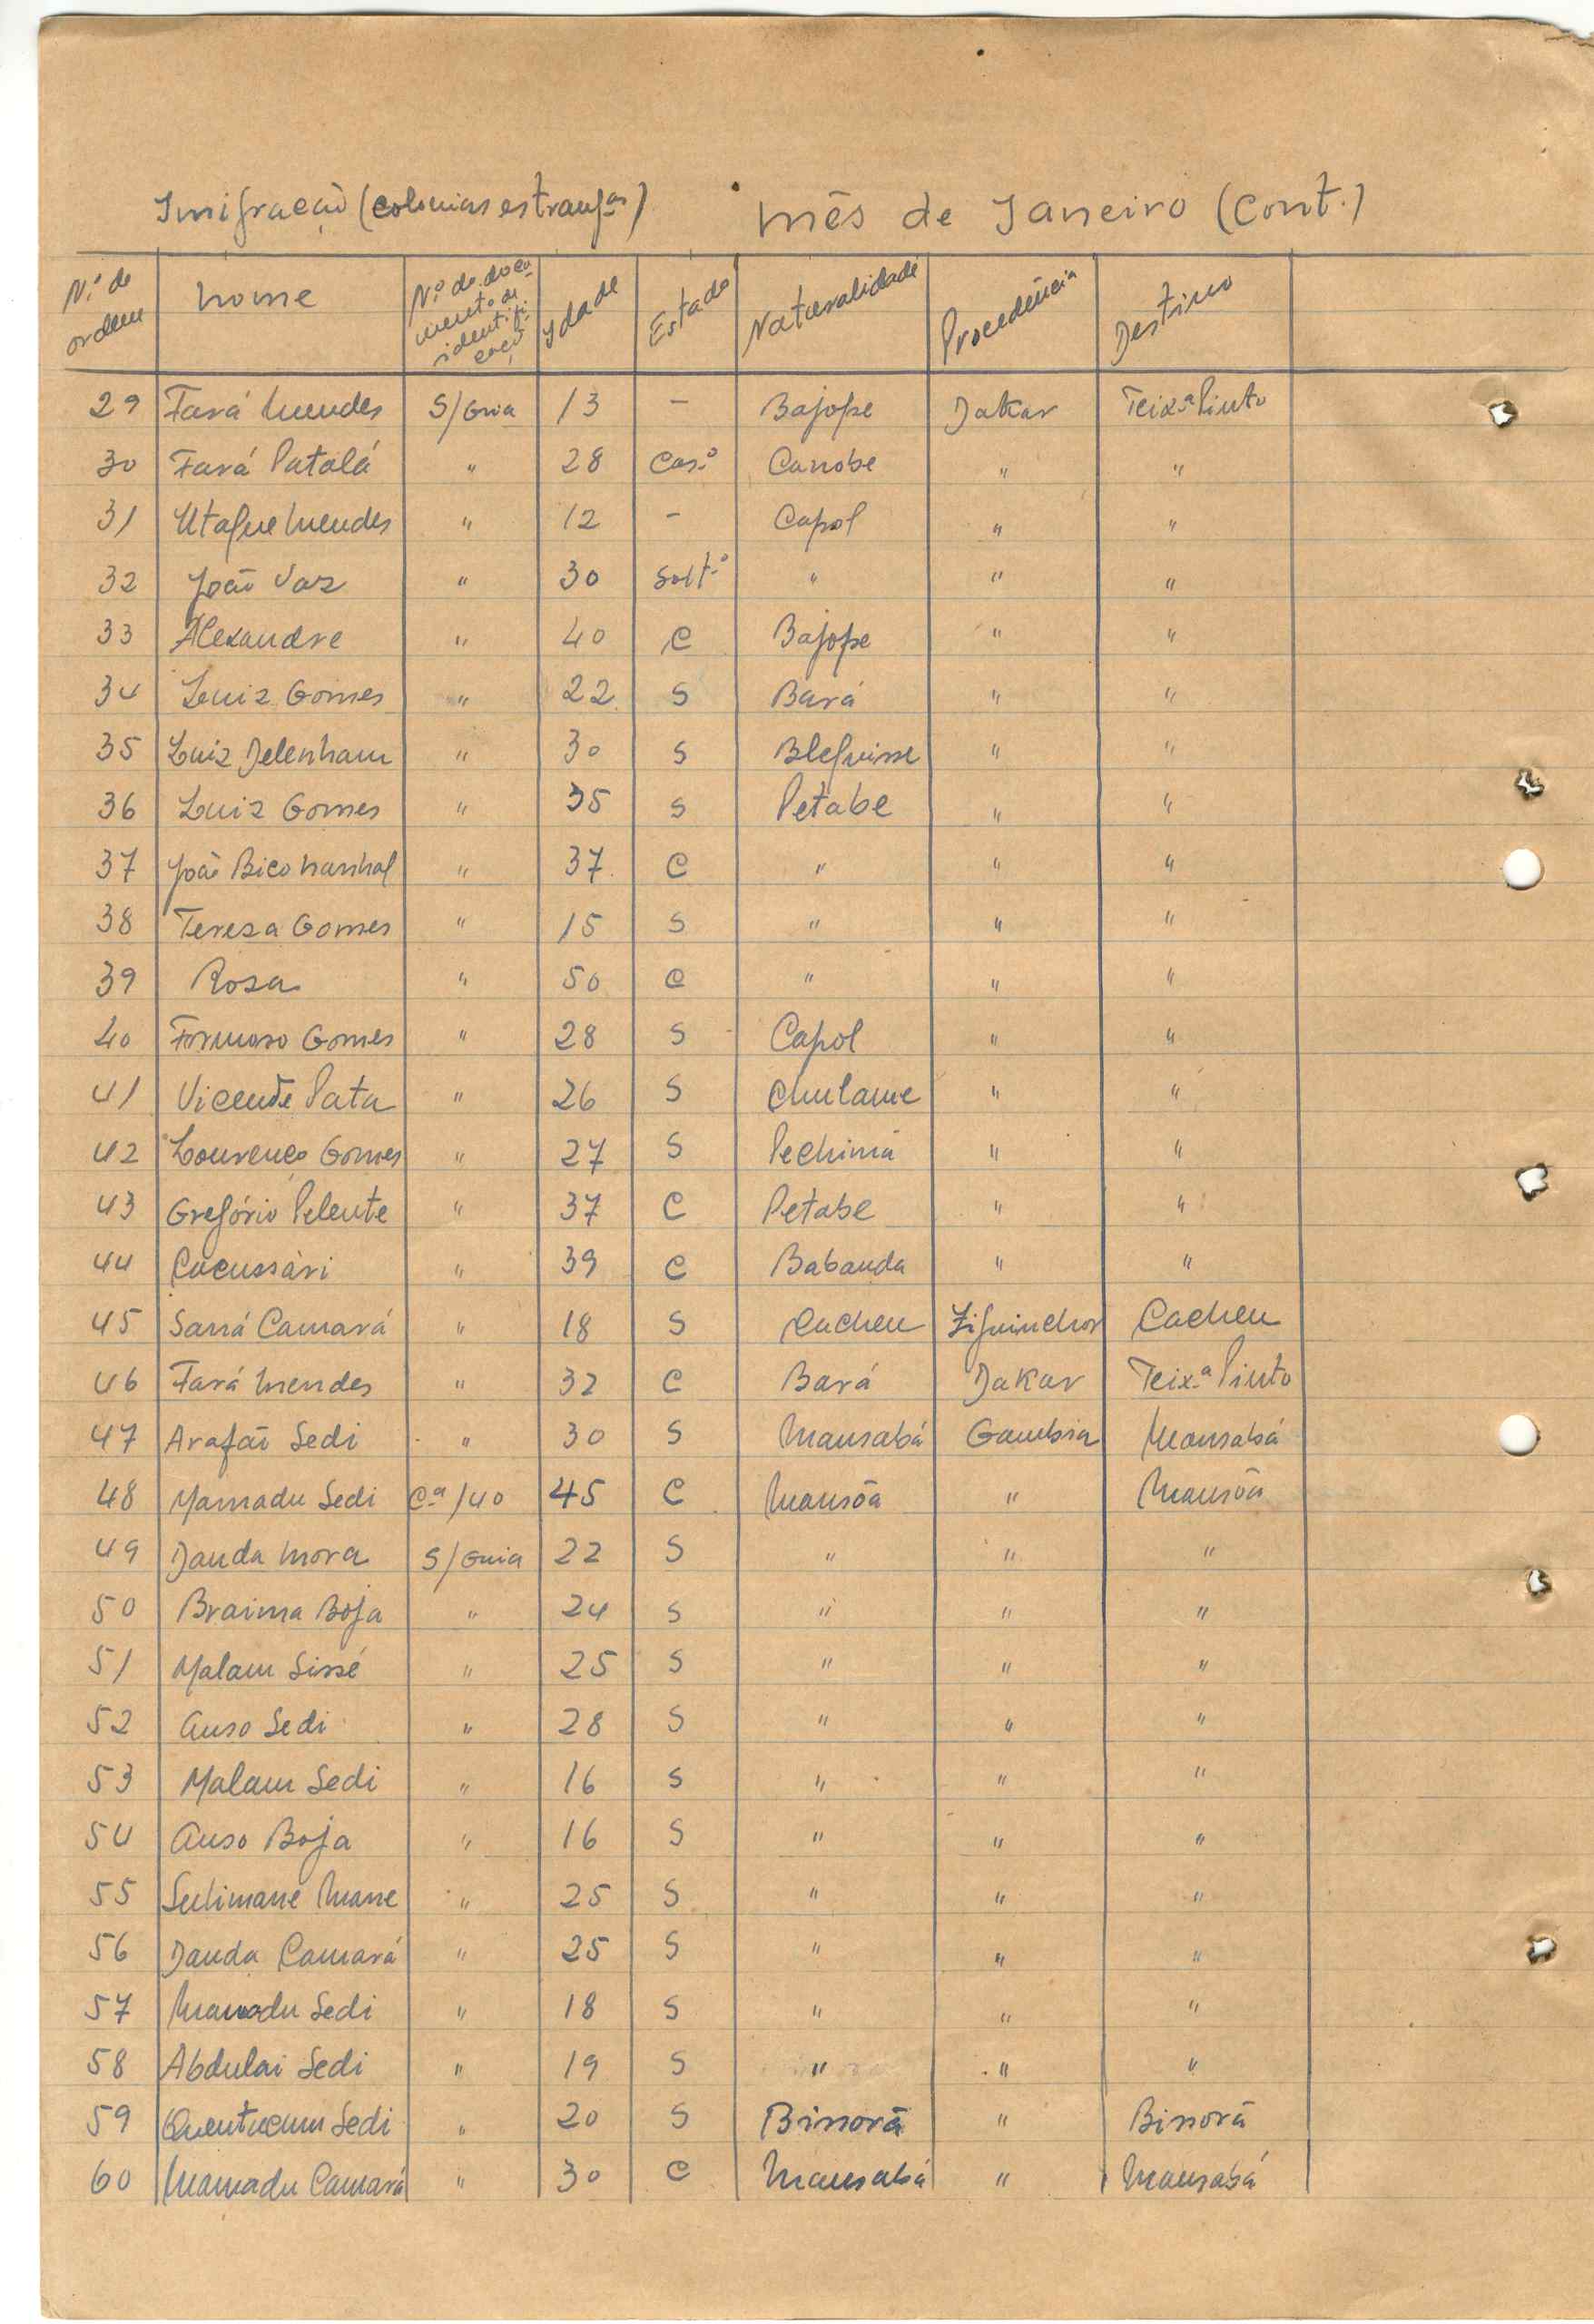 Imigração (colonias estrangas) Mês de Janeiro (Cont.)
N.º de ordem Nome N.º do documento de identificação Idade Estado Naturalidade Procedência Destino
29 Fará Mendes S/Guia 13 - Bajope Dakar Teix.ª Pinto
30 Fará Patalá " 28 Cas.º Canobe " "
31 Utague Mendes " 12 - Capol " "
32 João Vaz " 30 Solt.º " " "
33 Alexandre " 40 C Bajope " "
34 Luiz Gomes " 22 S Bará " "
35 Luiz Delenham " 30 S Bleguisse " "
36 Luiz Gomes " 35 S Petabe " "
37 João Bico Nanhal " 37 C " " "
38 Tereza Gomes " 15 S " " "
39 Roza " 50 C " " "
40 Formoso Gomes " 28 S Capol " "
41 Vicente Pata " 26 S Chulame " "
42 Lourenço Gomes " 27 S Pechima " "
43 Gregório Pelente " 37 C Petabe " "
44 Cacussári " 39 C Babanda " "
45 Saná Camará " 18 S Cacheu Ziguinchor Cacheu
46 Fará Mendes " 32 C Bará Dakar Teix.ª Pinto
47 Arafão Sedi " 30 S Mansabá Gambia Mansabá
48 Mamadu Sedi C.ª/40 45 C Mansôa " Mansôa
49 Dauda Mora S/Guia 22 S " " "
50 Braima Boja " 24 S " " "
51 Malam Sissé " 25 S " " "
52 Anso Sedi " 28 S " " "
53 Malam Sedi " 16 S " " "
54 Anso Boja " 16 S " " "
55 Sulimane Mane " 25 S " " "
56 Dauda Camará " 25 S " " "
57 Mamadu Sedi " 18 S " " "
58 Abdulai Sedi " 19 S " " "
59 Quentucum Sedi " 20 S Bissorã " Bissorã
60 Mamadu Camará " 30 C Mansabá " Mansabá